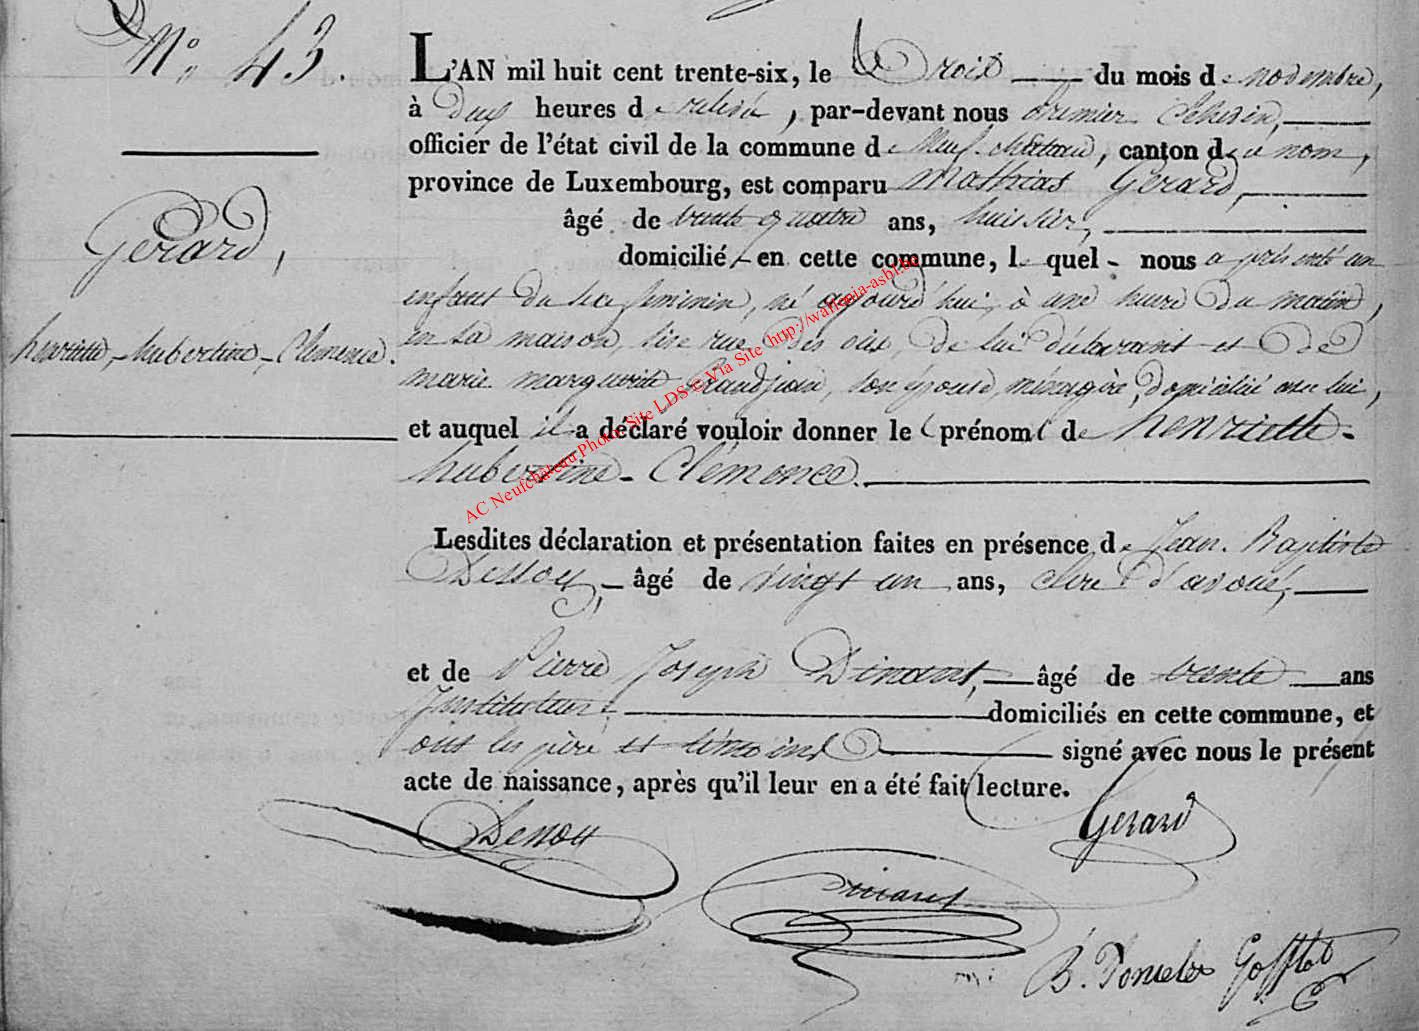 N.o 43.
L'AN mil huit cent trente-six, le trois du mois de novembre,
à deux heures de relevée, par-devant nous premier Echevin,
officier de l'état civil de la commune de Neufchateau, canton de ce nom,
province de Luxembourg, est comparu Mathias Gérard,
âgé de trente quatre ans, huissier,
domicilié en cette commune, lequel nous a présenté un
enfant du sexe féminin, né aujourd'hui, à une heure du matin,
en sa maison, sise rue des oies, de lui déclarant et de
marie marguerite Grandjean, son épouse, ménagère, domiciliée avec lui,
et auquel il a déclaré vouloir donner le prénom de henriette-
hubertine-Clémence.
Gerard,
henriette-hubertine-Clémence.
Lesdites déclaration et présentation faites en présence de Jean-Baptiste
Dessoy, âgé de vingt un ans, clerc d'avoué,
et de Pierre Joseph Dinant, âgé de trente ans
Instituteur, domiciliés en cette commune, et
ont les père et témoins signé avec nous le présent
acte de naissance, après qu'il leur en a été fait lecture.
Dessoy
Gerard
Dinant
AC Neufchateau Photo Site LDS © Via Site http://wallonia-asbl.be